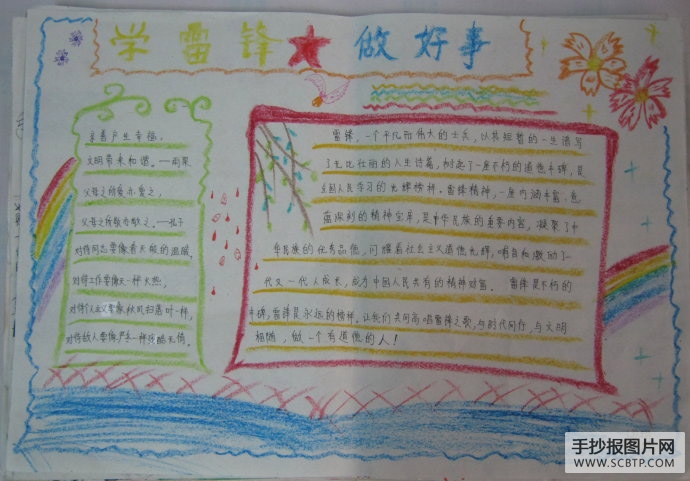 学雷锋★做好事
亲善产生幸福，
文明带来和谐。——雨果
父母之所爱亦爱之，
父母之所敬亦敬之。——孔子
对待同志要像春天般的温暖，
对待工作要像夏天一样火热，
对待个人主义要像秋风扫落叶一样，
对待敌人要像严冬一样残酷无情。
雷锋，一个平凡而伟大的士兵，以其短暂的一生谱写
了无比壮丽的人生诗篇，树起了一座不朽的道德丰碑，是
全国人民学习的光辉榜样。雷锋精神，一座内涵丰富、意
蕴深刻的精神宝库，是中华民族的重要内容，凝聚了中
华民族的优秀品德，闪耀着社会主义道德光辉，哺育和激励了一
代又一代人成长，成为中国人民共有的精神财富。 雷锋是不朽的
丰碑，雷锋是永远的榜样，让我们共同高唱雷锋之歌，与时代同行，与文明
相随，做一个有道德的人！
手抄报图片网
WWW.SCBTP.COM